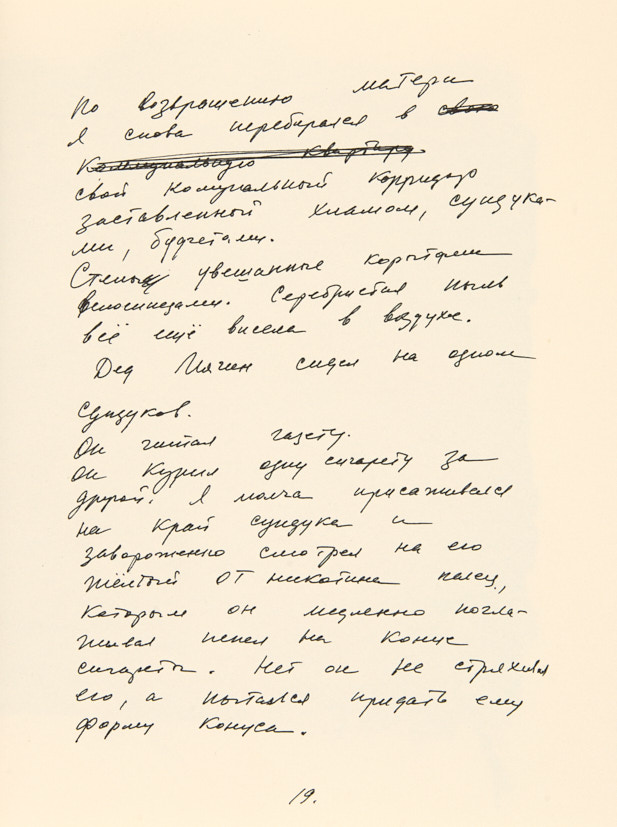 По возвращению матери
я снова перебирался в свою
Коммунальную квартиру.
свой комунальный корридор
заставленный хламом, сундука-
ми,
Стены увешанные корытами
велосипедами. Серебристая пыль
всё ещё висела в воздухе.
Дед сидел на одном
сундуков.
Он читал газету.
он курил одну сигарету за
другой. Я молча присаживался
на край сундука и
завороженно смотрел на его
жёлтый от никотина палец,
которым он медленно погла-
живал пепел на конце
сигареты. Нет он не стряхивал
его, а пытался придать ему
форму конуса.
19.